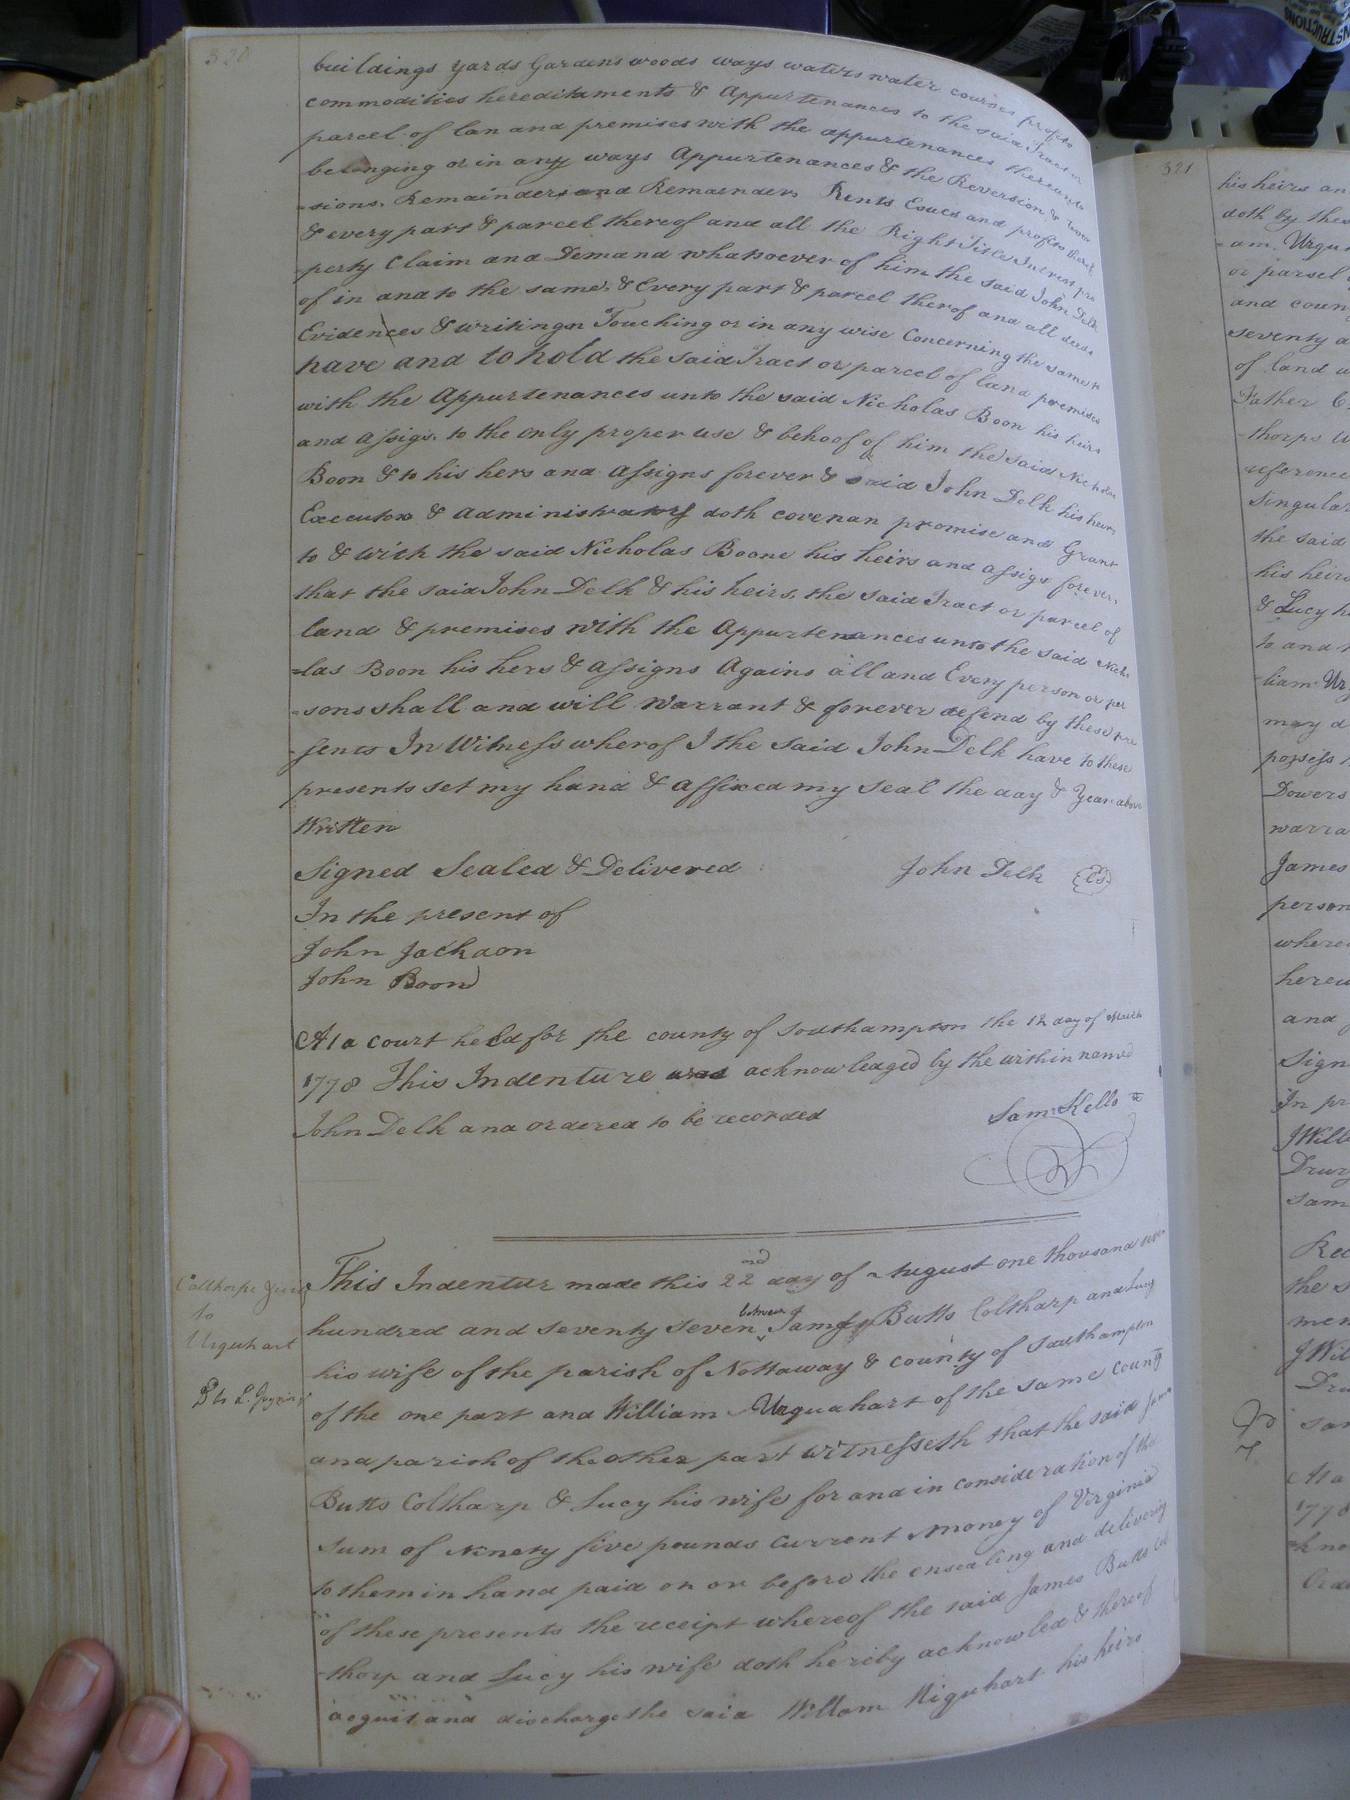 320
buildings yards Gardens woods ways waters water courses profits
commodities hereditaments & Appurtenances to the said Tract or
parcel of lan and premises with the appurtenances thereunto
belonging or in any ways Appurtenances & the Reversion &
-sions. Remainders and Remaender Rents Esues and profits
& every part & parcel thereof and all the Right Title Interest pro
-perty Claim and Demand whatsoever of him the said John Delk
of in and to the same. & Every part & parcel therof and all deeds
Evidences & writingn Touching or in any wise Concerning the same to
have and to hold the said Tract or parcel of land premises
with the Appurtenances unto the said Nicholas Boon his heirs
and assigs. to the only proper use & behoof of him the said Nicholas
Boon & to his hers and assigns forever & said John Delk his heirs
Executors & administrators doth covenan promise and Grant
to & with the said Nicholas Boone his heirs and assigs forever.
that the said John Delk & his heirs, the said Tract or parcel of
land & premises with the Appurtenances unto the said Nicho
-las Boon his hers & assigns Agains all and Every person or per
-sons shall and will warrant & forever defend by these pre
-sents In Witness wherof I the said John Delk have to these
presents set my hand & affixed my seal the day & Year above
Written
Signed Sealed & Delivered John Delk Ls
In the present of
John Jackson
John Boon
At a court held for the county of Southampton the 12 day of March
1778 This Indenture was acknowledged by the within named
John Delk and ordered to be recorded Sam Kello
Calthorpe
to
Urquhart
This Indentur made this 22nd day of August one thousand seven
hundred and seventy seven between James Butts Coltharp and Lucy
his wife of the parish of Nottaway & county of Southampton
of the one part and William Urquahart of the same County
and parish of the other part witnesseth that the said James
Butts Coltharp & Lucy his wife for and in consideration of the
sum of Ninety five pounds Current money of Virginia
to them in hand paid on or before the ensealing and delivering
of these presents the receipt whereof the said James Butts Col
-thorp and Lucy his wife doth hereby acknowled & thereof
acquit and discharge the said Willam Uiquhart his heirs
321
his heirs an
doth by thes
-am. Urqu
or parsel
and coun
seventy a
of land
Father
-thorps
refference
Singular
the said
his heirs
& Lucy h
to and
-liam Ur
may d
possess
Dowers
warra
James
person
where
hereu
and
Sign
In pr
J Will
Drury
Sam
Rec
the s
mem
J Wil
Dru
Sam
At a
1778
-kno
Orde